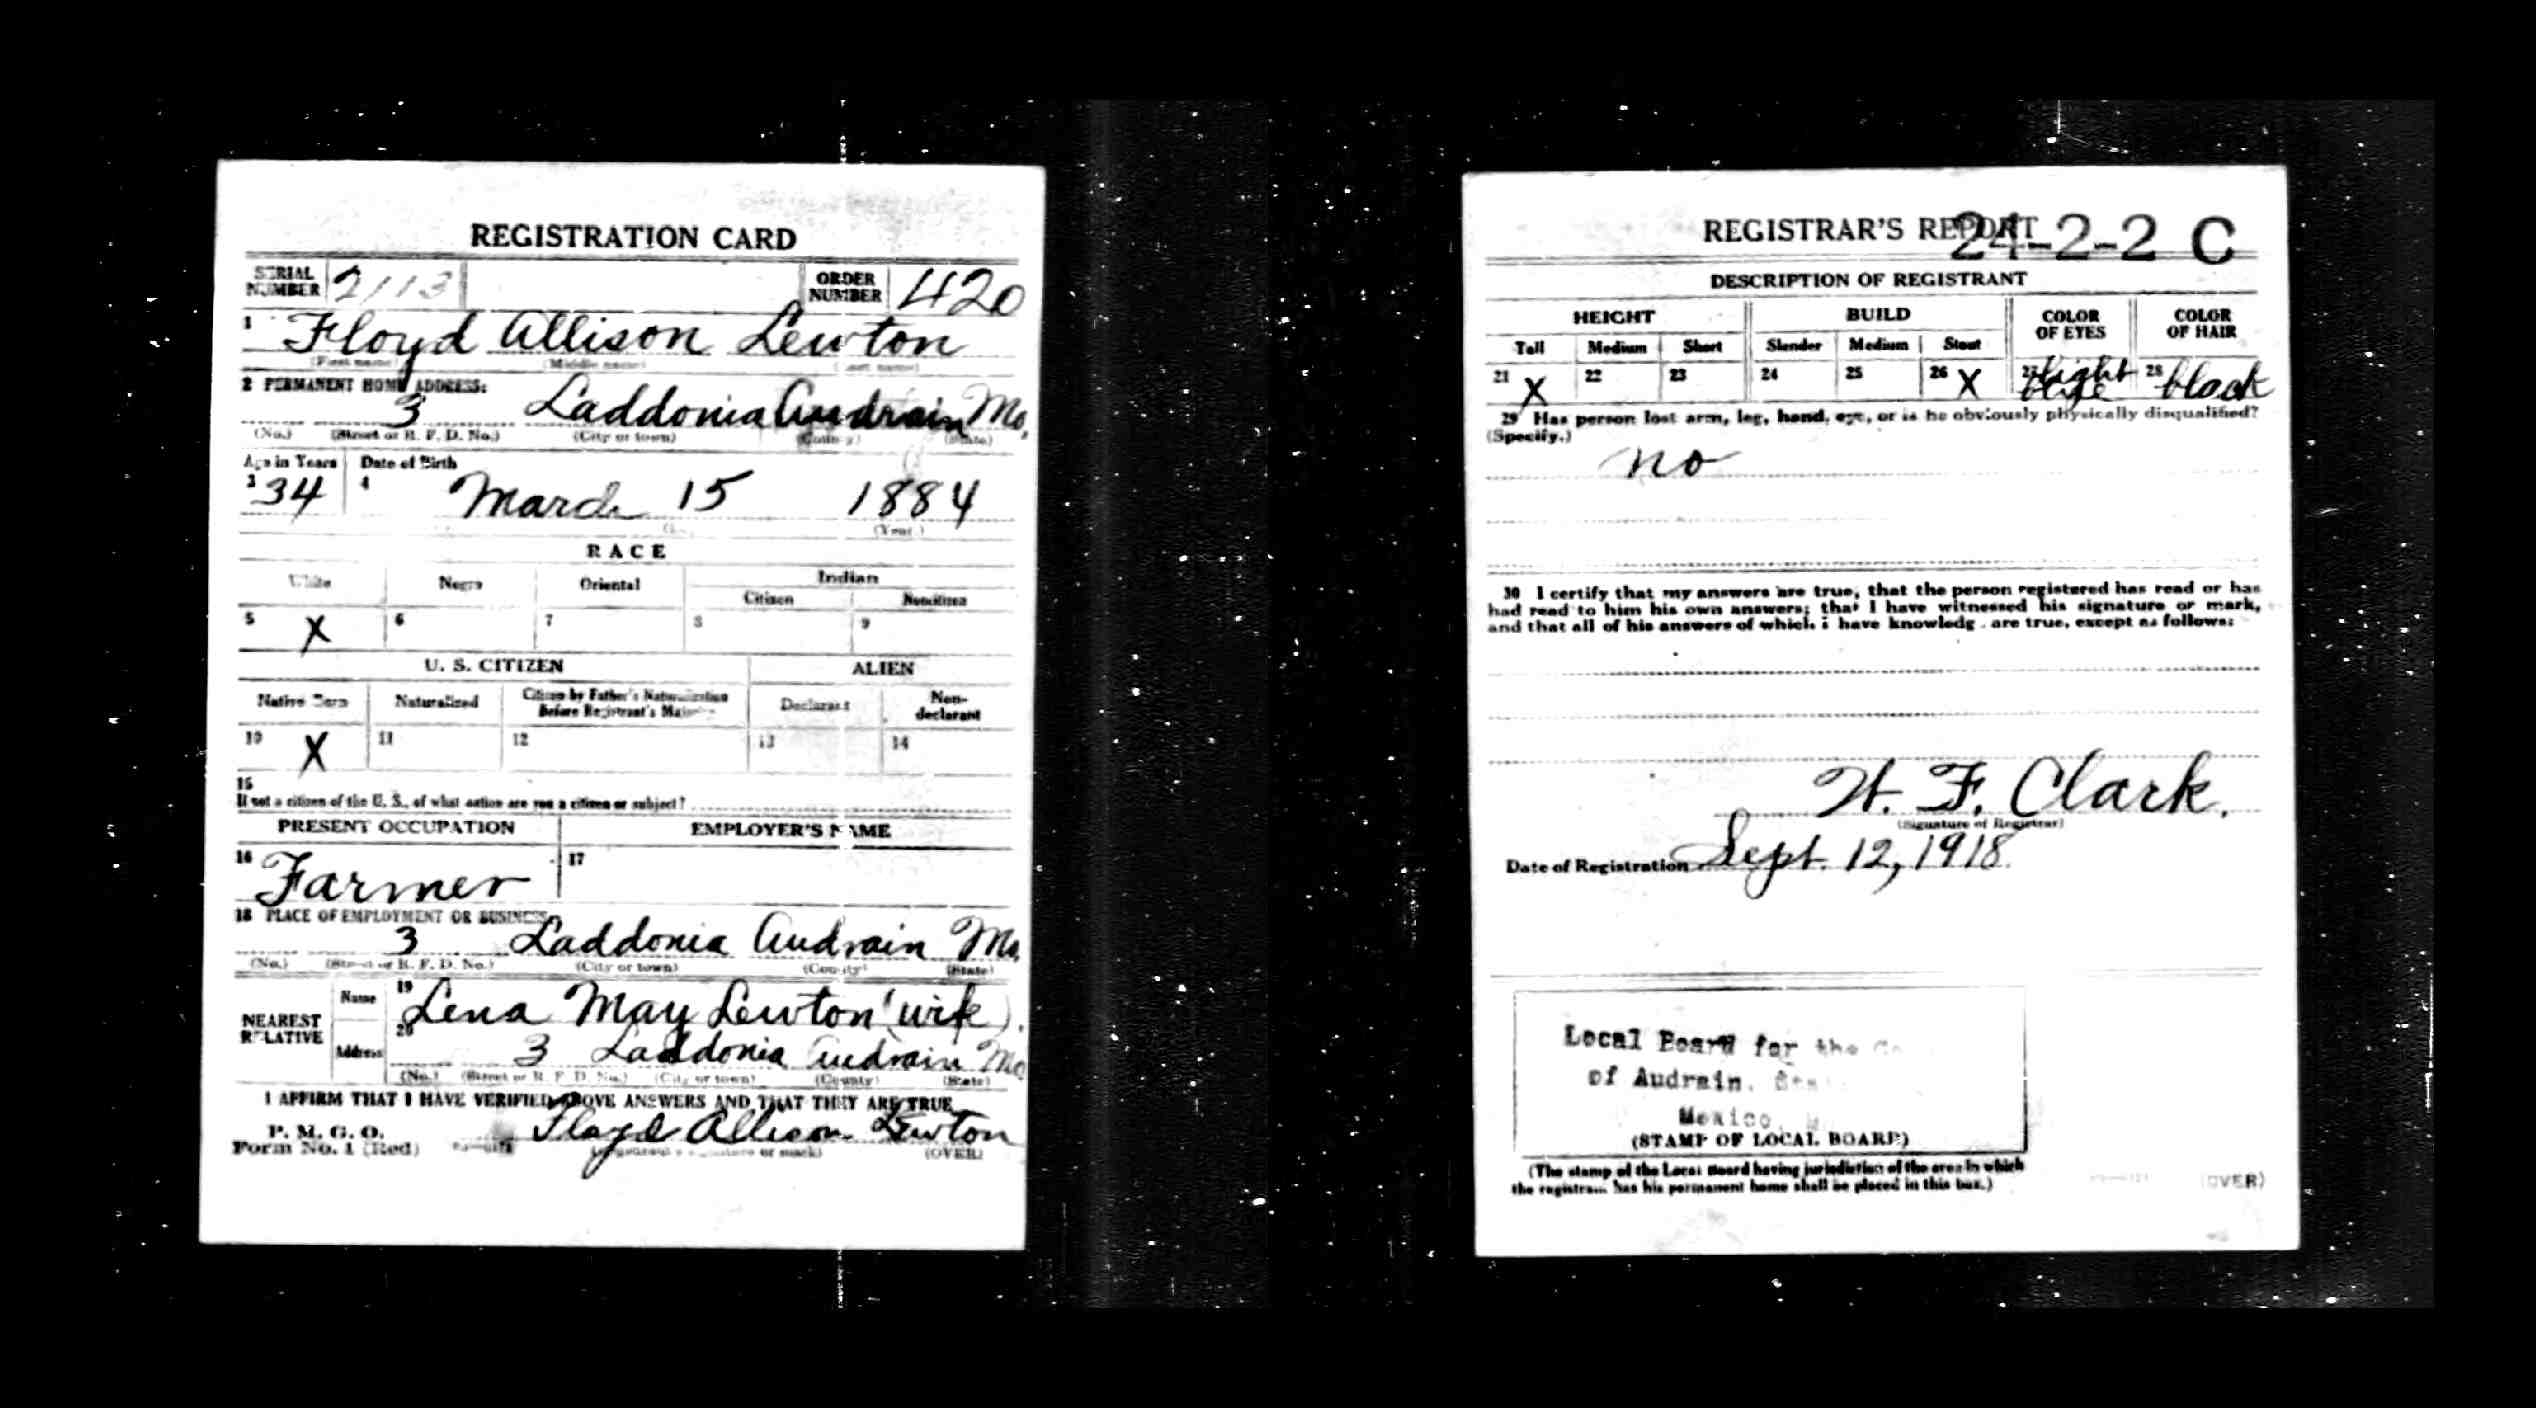 REGISTRATION CARD
SERIAL NUMBER 2113 ORDER NUMBER 420
1 Floyd Allison Lewton
(First name) (Middle name) (Last name)
2 PERMANENT HOME ADDRESS:
3 Laddonia Audrain Mo.
(No.) (Street or R. F. D. No.) (City or town) (County) (State)
Age in Years Date of Birth
3 34 4 March 15 1884
(Year.)
RACE
White Negro Oriental Indian
Citizen Noncitizen
5 X 6 7 8 9
U. S. CITIZEN ALIEN
Native Born Naturalized Citizen by Father's Naturalization Before Registrant's Majority Declarant Non-declarant
10 X 11 12 13 14
15
If not a citizen of the U. S., of what nation are you a citizen or subject?
PRESENT OCCUPATION EMPLOYER'S NAME
16 Farmer 17
18 PLACE OF EMPLOYMENT OR BUSINESS
3 Laddonia Audrain Mo.
(No.) (Street or R. F. D. No.) (City or town) (County) (State)
NEAREST RELATIVE Name 19 Lena May Lewton (wife).
Address 20 3 Laddonia Audrain Mo
(No.) (Street or R. F. D. No.) (City or town) (County) (State)
I AFFIRM THAT I HAVE VERIFIED ABOVE ANSWERS AND THAT THEY ARE TRUE
P. M. G. O.
Form No. 1 (Red) Floyd Allison Lewton
(Registrant's signature or mark) (OVER)
REGISTRAR'S REPORT
24-2-2 C
DESCRIPTION OF REGISTRANT
HEIGHT BUILD COLOR OF EYES COLOR OF HAIR
Tall Medium Short Slender Medium Stout
21 X 22 23 24 25 26 X 27 light blue 28 black
29 Has person lost arm, leg, hand, eye, or is he obviously physically disqualified?
(Specify.)
no
30 I certify that my answers are true, that the person registered has read or has
had read to him his own answers; that I have witnessed his signature or mark,
and that all of his answers of which I have knowledge are true, except as follows:
W. F. Clark.
(Signature of Registrar)
Date of Registration Sept. 12, 1918.
Local Board for the
of Audrain,
Mexico,
(STAMP OF LOCAL BOARD)
(The stamp of the Local Board having jurisdiction of the area in which
the registrant has his permanent home shall be placed in this box.)
(OVER)